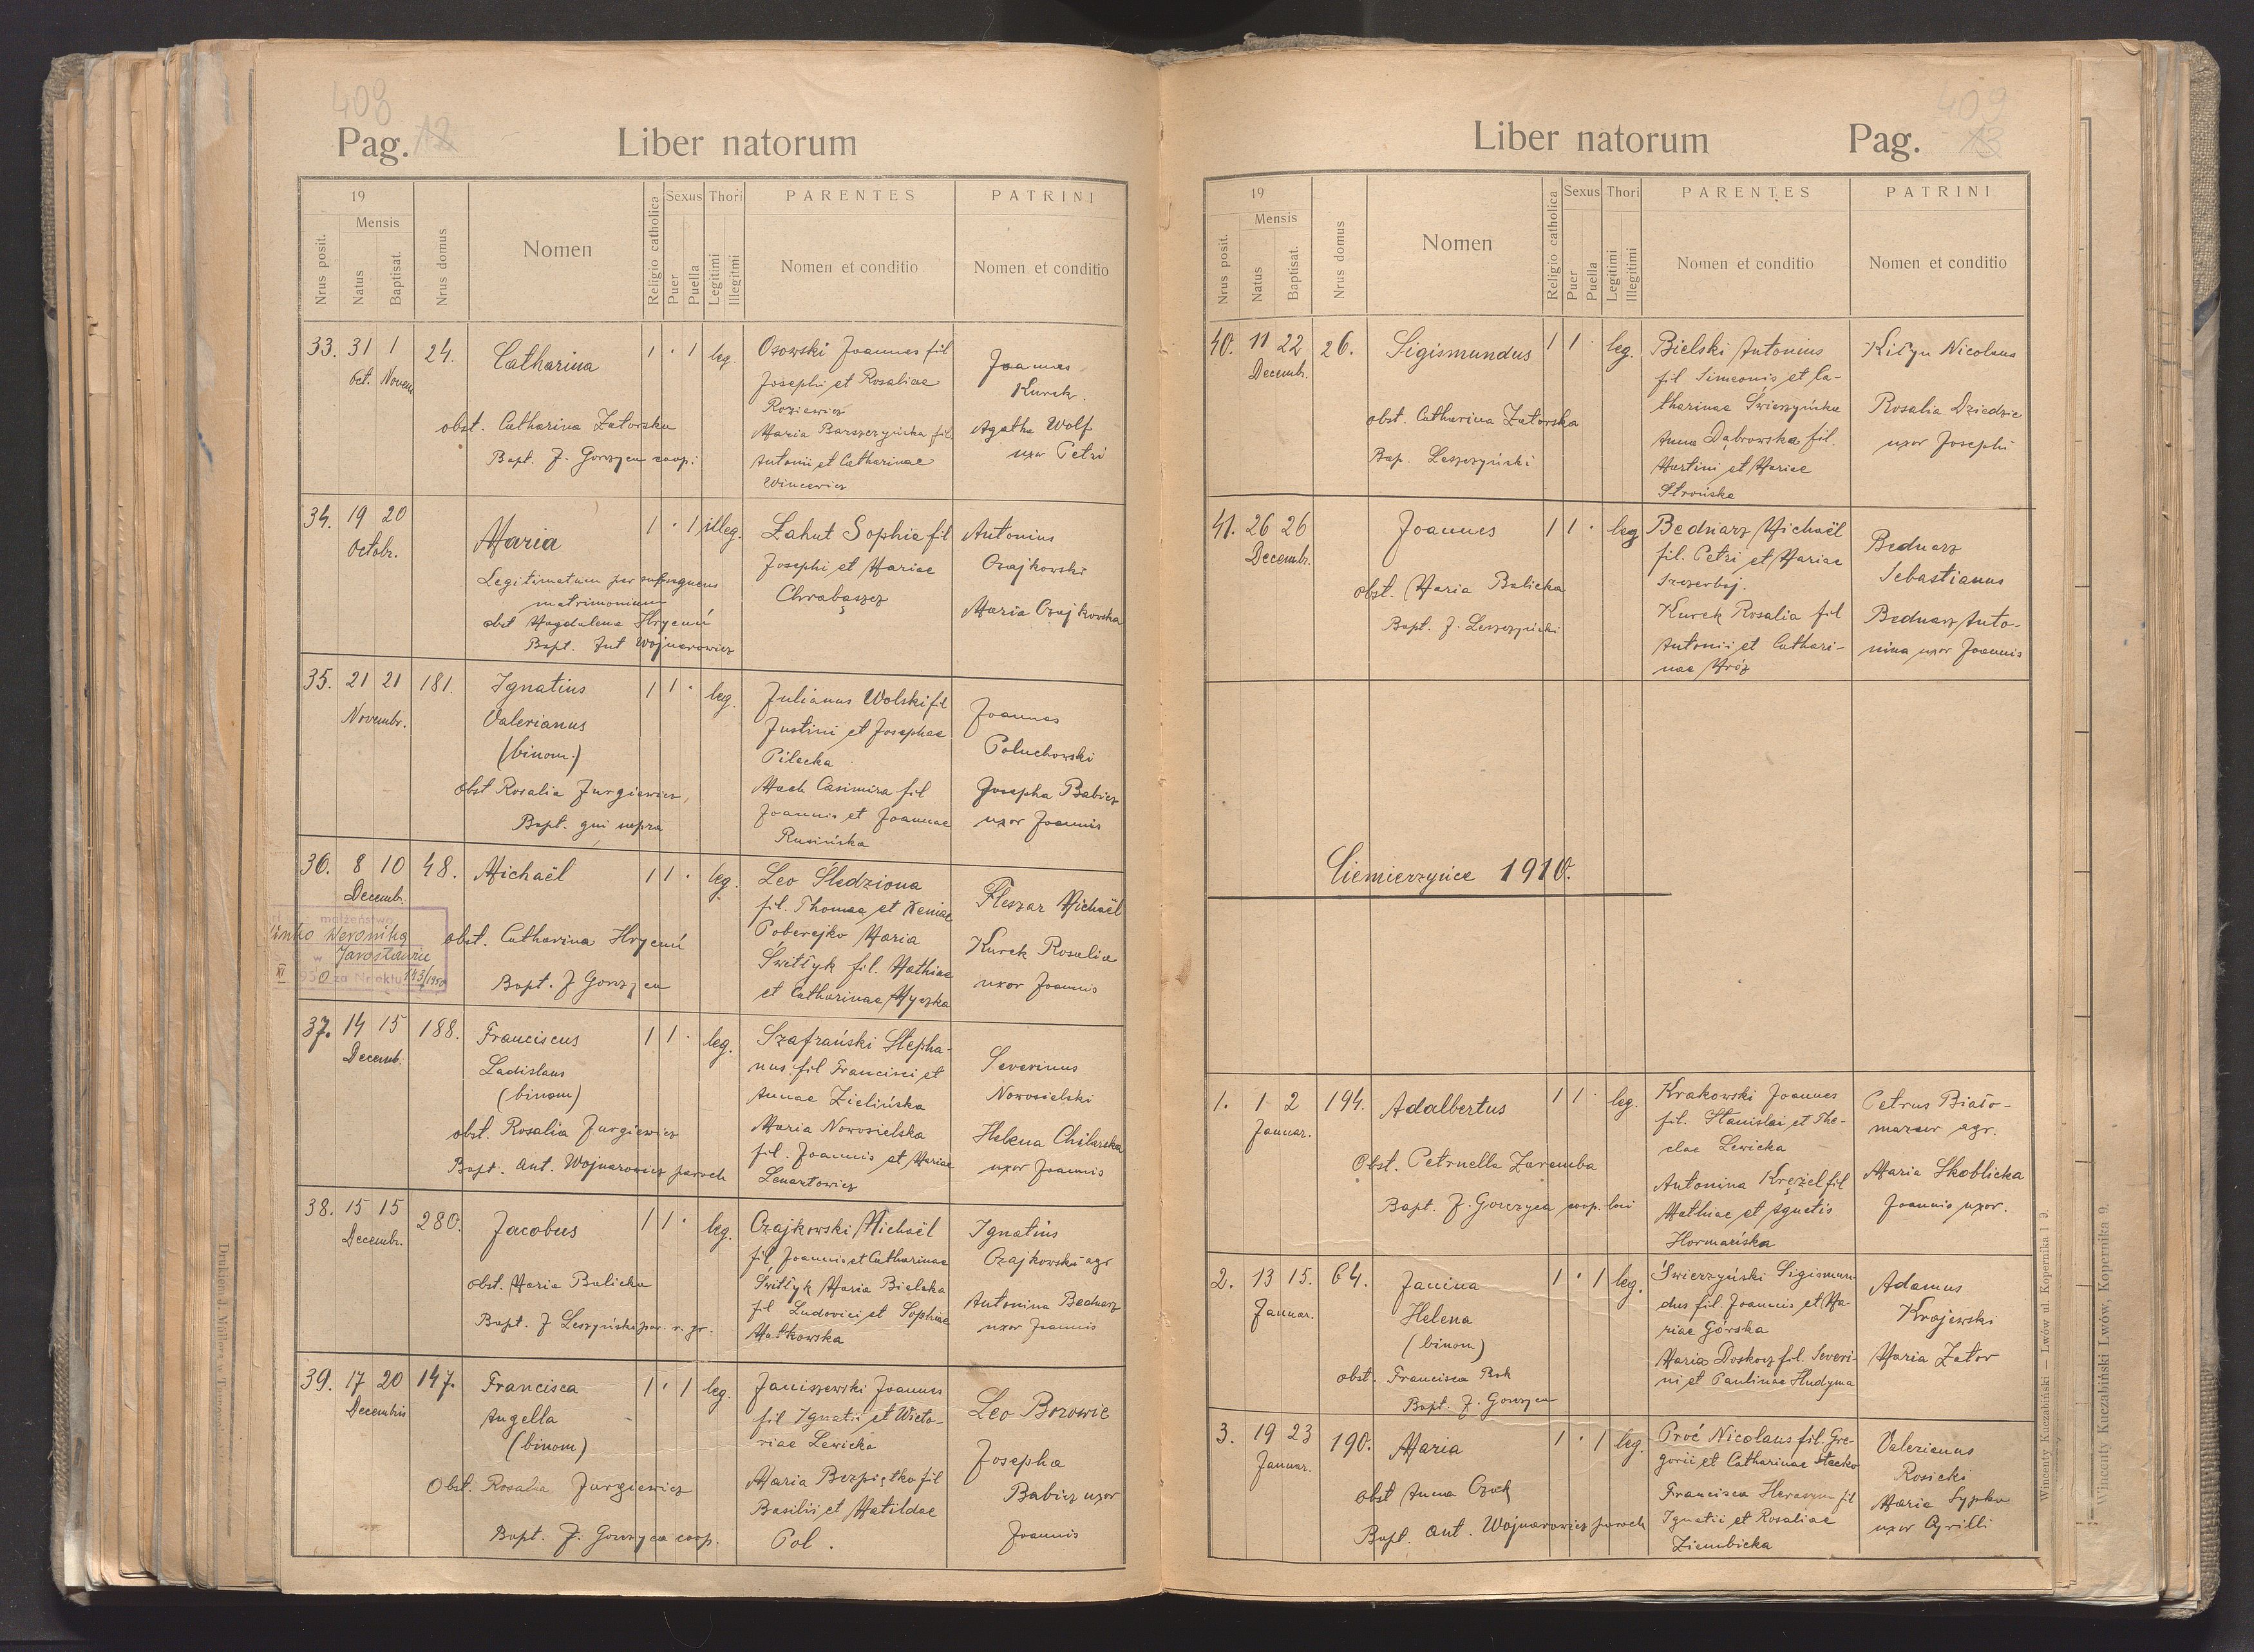 408
Pag. 12
Liber natorum
19
Mensis
Nrus posit.
Natus
Baptisat.
Nrus domus
Nomen
Religio catholica
Sexus
Puer
Puella
Thori
Legitimi
Illegitmi
PARENTES
Nomen et conditio
PATRINI
Nomen et conditio
33. 31 1 24. Catharina 1 . 1 leg.
Oct. Novem
obst. Catharina Zatorska
Bapt. J. Gorczyca coop.
Osowski Joannes fil
Josephi et Rosaliae
Roziewicz
Maria Barszczyńska fil
Antonii et Catharinae
Wincewicz
Joannes
Kurek.
Agatha Wolf
uxor Petri
34. 19 20 Maria 1 . 1 illeg.
Octobr.
Legitimatum per subsequens
matrimonium
obst Magdalena Hryciw
Bapt. Ant Wojnarowicz
Łahut Sophia fil
Josephi et Mariae
Chrabąszcz
Antonius
Czajkowski
Maria Czajkowska
35. 21 21 181. Ignatius 1 1 . leg.
Novembr. Valerianus
(binom.)
obst Rosalia Jurgiewicz,
Bapt. qui supra
Julianus Wolski fil
Justini et Josephae
Pilecka
Mach Casimira fil
Joannis et Joannae
Rusińska
Joannes
Poluchowski
Josepha Babicz
uxor Joannis
36. 8 10 48. Michaël 1 1 . leg.
Decemb.
małżeństwo
Weronika
w Jarosławiu
XI 1950 za Nr aktu 143/1950
obst. Catharina Hryciw
Bapt. J Gorczyca
Leo Śledziona
fil. Thomae et Xeniae
Poberejko Maria
Świtłyk fil. Mathiae
et Catharinae Myszka
Fleszar Michaël
Kurek Rosalia
uxor Joannis
37. 14 15 188. Franciscus 1 1 . leg.
Decemb. Ladislaus
(binom)
obst. Rosalia Jurgiewicz
Bapt. Ant. Wojnarowicz paroch
Szafrański Stepha-
nus. fil Francisci et
Annae Zielińska
Maria Nowosielska
fil. Joannis et Mariae
Lenartowicz
Severinus
Nowosielski
Helena Chilarska
uxor Joannis
38. 15 15 280. Jacobus 1 1 . leg.
Decembr.
obst. Maria Balicka
Bapt. J Leszczyński par. r. gr.
Czajkowski Michaël
fil Joannis et Catharinae
Świtłyk Maria Bielska
fil Ludovici et Sophiae
Małkowska
Ignatius
Czajkowski agr
Antonina Bednarz
uxor Joannis
39. 17 20 147. Francisca 1 . 1 leg.
Decembris Angella
(binom)
Obst. Rosalia Jurgiewicz
Bapt. J. Gorczyca coop.
Janiszewski Joannes
fil Ignatii et Victo-
riae Lewicka
Maria Bezpiętko fil
Basilii et Matildae
Pol.
Leo Borowic
Josepha
Babicz uxor
Joannis
Drukiem J. Millera w
Liber natorum
409
Pag. 13
19
Mensis
Nrus posit.
Natus
Baptisat.
Nrus domus
Nomen
Religio catholica
Sexus
Puer
Puella
Thori
Legitimi
Illegitimi
PARENTES
Nomen et conditio
PATRINI
Nomen et conditio
40. 11 22 26. Sigismundus 1 1 . leg.
Decembr.
obst. Catharina Zatorska
Bap. Leszczyński
Bielski Antonius
fil Simeonis et Ca-
tharinae Świerzyńska
Anna Dąbrowska fil.
Martini et Mariae
Strońska
Nicolaus
Rosalia Dziedzic
uxor Josephi
41. 26 26 Joannes 1 1 . leg
Decembr.
obst. Maria Balicka
Bapt. J. Leszczyński
Bednarz Michaël
fil. Petri et Mariae
Szczerbaj.
Kurek Rosalia fil
Antonii et Cathari-
nae Mróz
Bednarz
Sebastianus
Bednarz Anto-
nina uxor Joannis
Ciemierzyńce 1910.
1. 1 2 194. Adalbertus 1 1 . leg.
Januar.
Obst. Petruella Zaremba
Bapt. J. Gorczyca coop. loci
Krakowski Joannes
fil. Stanislai et The-
clae Lewicka
Antonina Krężel fil
Mathiae et Agnetis
Hormańska
Petrus Biało-
marzur agr.
Maria Skoblicka
Joannis uxor.
2. 13 15. 64. Janina 1 . 1 leg.
Januar. Helena
(binom)
obst. Francisca Bok
Bapt. J. Gorczyca
Świerzyński Sigismun
dus fil. Joannis et Ma-
riae Górska
Maria Doskocz fil. Severi-
ni et Paulinae Hudyma
Adamus
Krajewski
Maria Zator
3. 19 23 190. Maria 1 . 1 leg.
Januar.
obst Anna Czech
Bapt. Ant. Wojnarowicz paroch
Proć Nicolaus fil. Gre-
gorii et Catharinae Stecko
Francisca Heraszm fil
Ignatii et Rosaliae
Ziembicka
Valerianus
Rosicki
Maria Sypko
uxor Cyrilli
Wincenty Kuczabiński — Lwów ul. Kopernika l 9.
Wincenty Kuczabiński Lwów, Kopernika 9.